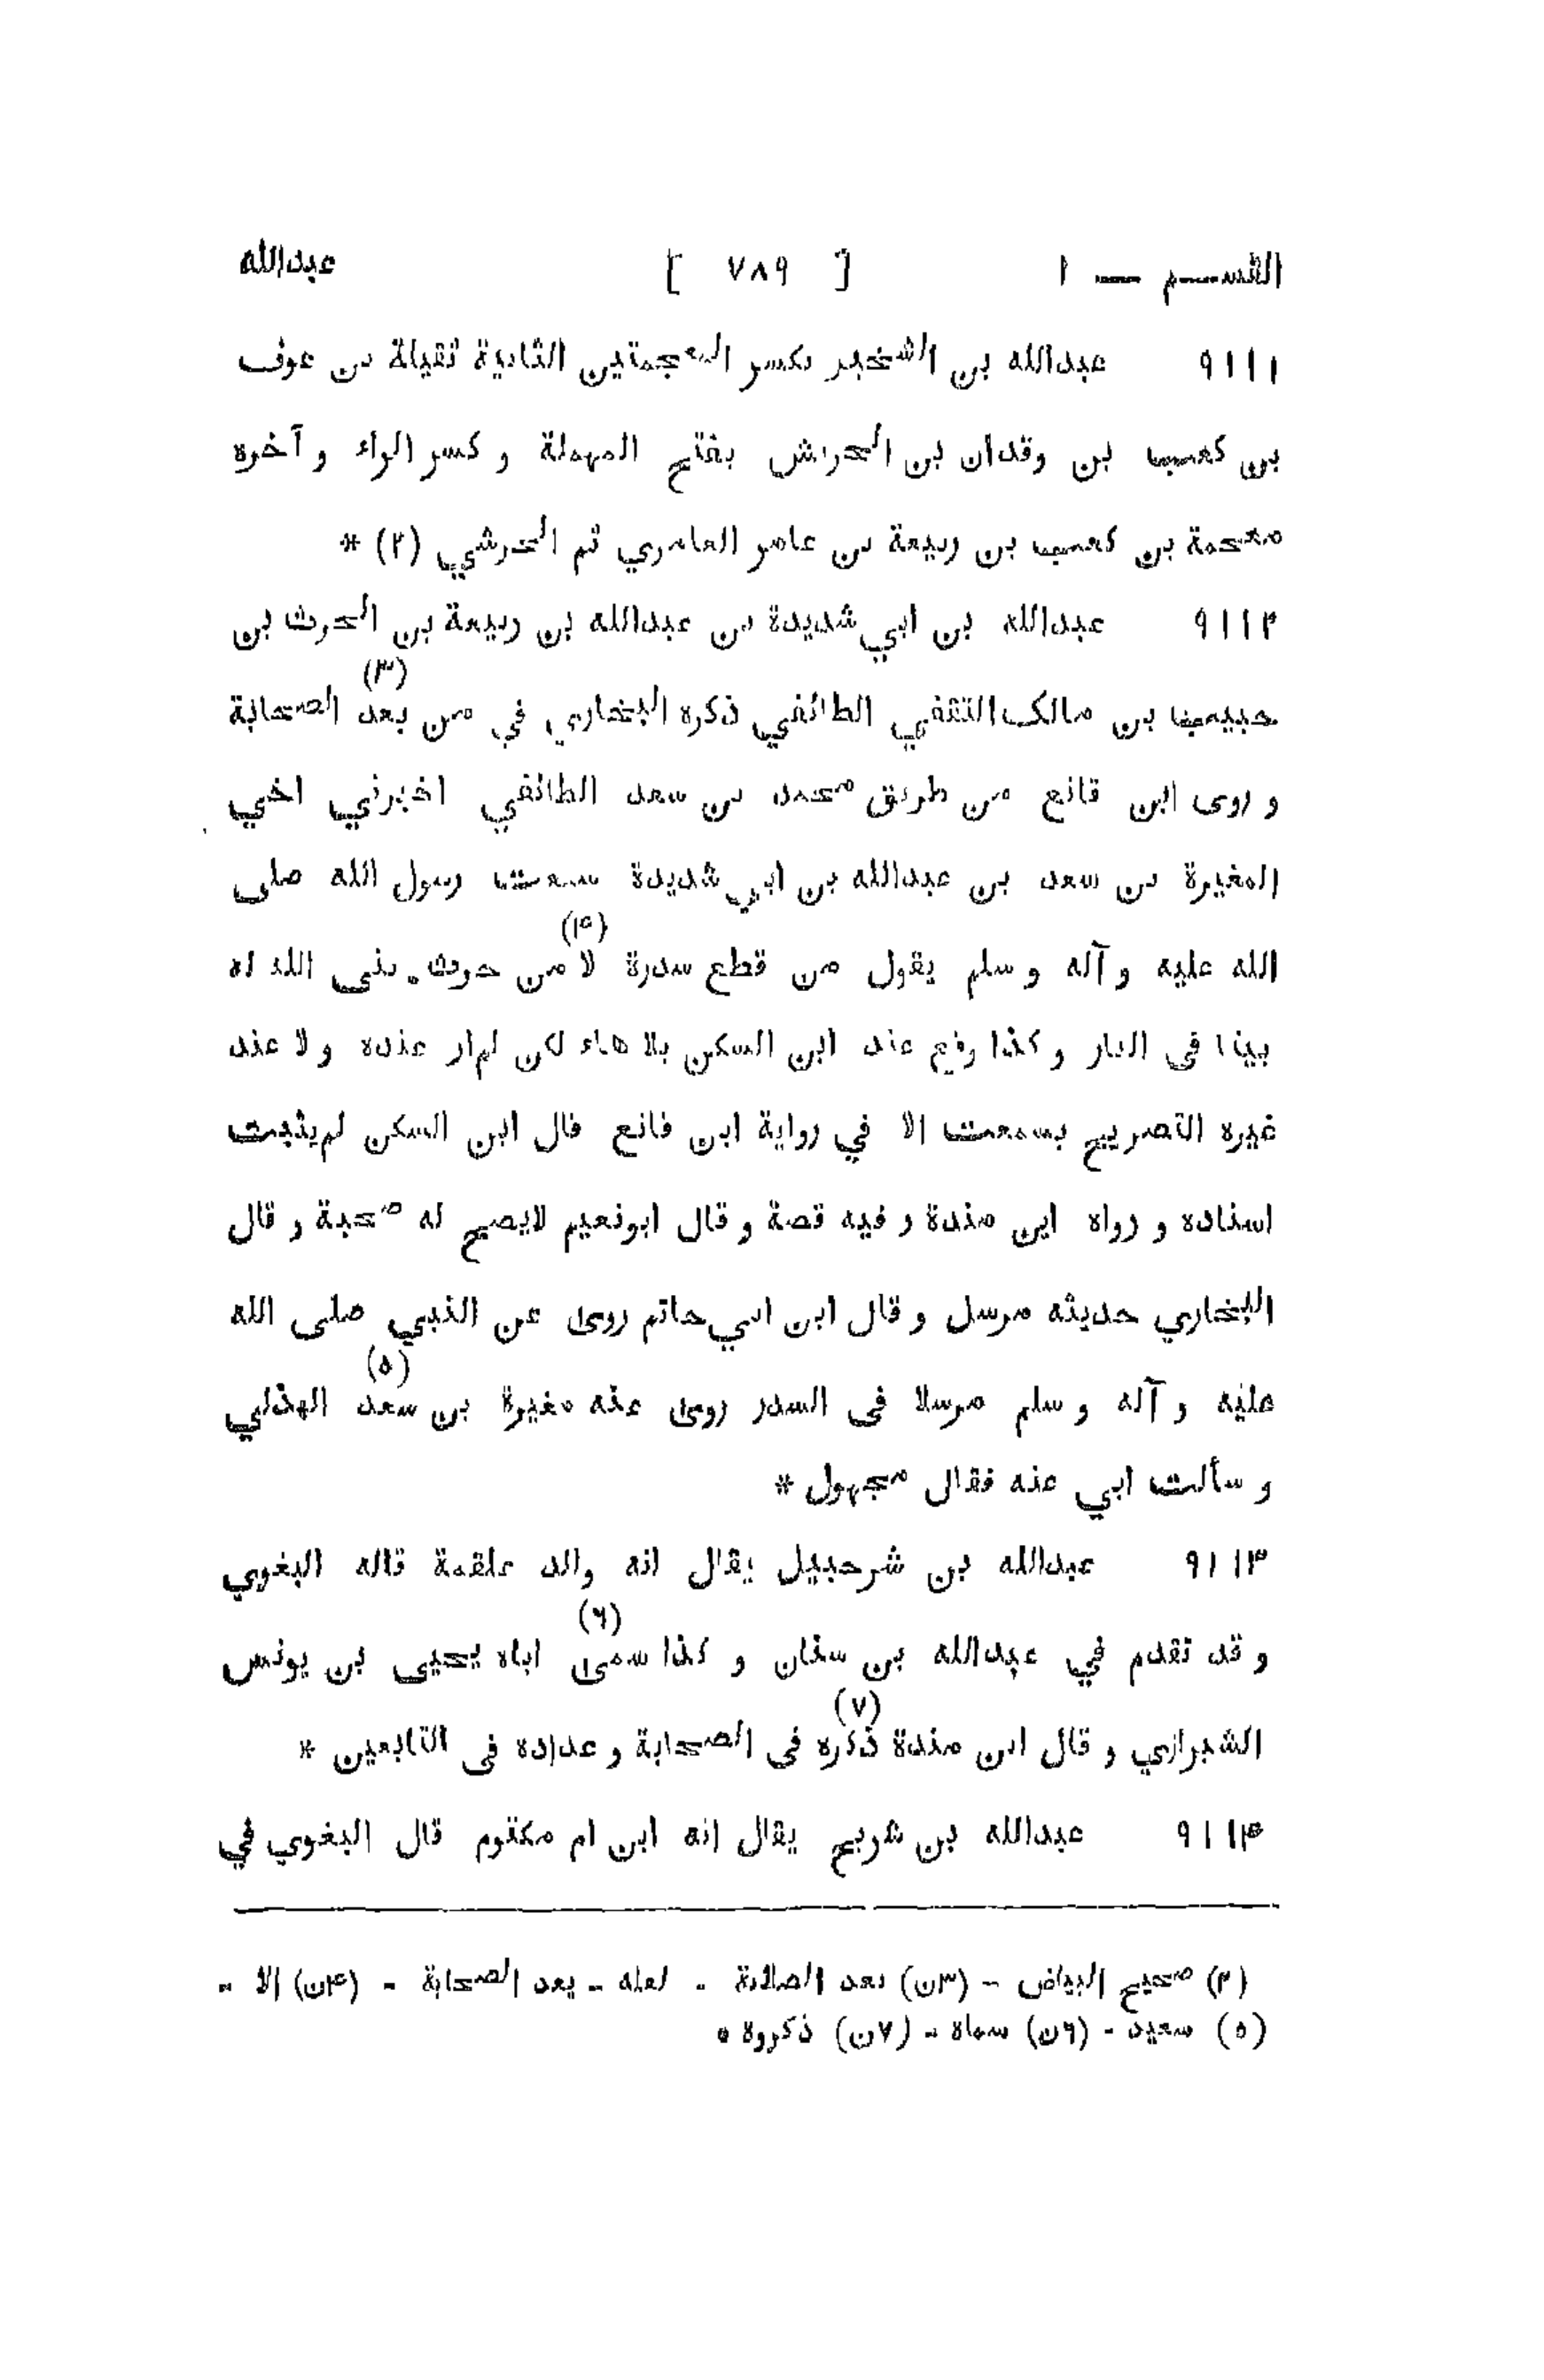 القسم — ١ [ ٧٨٩ ] عبدالله
٩١١١ عبدالله بن الشخير بكسر المعجمتين الثانية ثقيلة بن عوف
بن كعب بن وقدان بن الحريش بفتح المهملة و كسر الراء و آخره
معجمة بن كعب بن ربيعة بن عامر العامري ثم الحرشي (٢) *
٩١١٢ عبدالله بن ابي شديدة بن عبدالله بن ربيعة بن الحرث بن
حبيب بن مالك الثقفي الطائفي ذكره البخاري في من بعد (٣) الصحابة
و روى ابن قانع من طريق محمد بن سعد الطائفي اخبرني اخي
المغيرة بن سعد بن عبدالله بن ابي شديدة سمعت رسول الله صلى
الله عليه و آله و سلم يقول من قطع سدرة لا (۴) من حرث بنى الله له
بيتا فى النار و كذا رفع عند ابن السكن بلا هاء لكن لم ار عنده و لا عند
غيره التصريح بسمعت الا في رواية ابن قانع قال ابن السكن لم يثبت
اسناده و رواه ابن مندة و فيه قصة و قال ابونعيم لايصح له صحبة و قال
البخاري حديثه مرسل و قال ابن ابي حاتم روى عن النبي صلى الله
عليه و آله و سلم مرسلا فى السدر روى عنه مغيرة بن سعد (٥) الهذلي
و سألت ابي عنه فقال مجهول *
٩١١٣ عبدالله بن شرحبيل يقال انه والد علقمة قاله البغوي
و قد تقدم في عبدالله بن سنان و كذا سمى (٦) اباه يحيى بن يونس
الشيرازي و قال ابن مندة ذكره (٧) فى الصحابة و عداده فى التابعين *
٩١١۴ عبدالله بن شريح يقال انه ابن ام مكتوم قال البغوي في
(٢) صحيح البياض - (٣ن) بعد الصلانة - لعله - يعد الصحابة - (۴ن) الا -
(٥) سعيد - (٦ن) سماه - (٧ن) ذكروه *